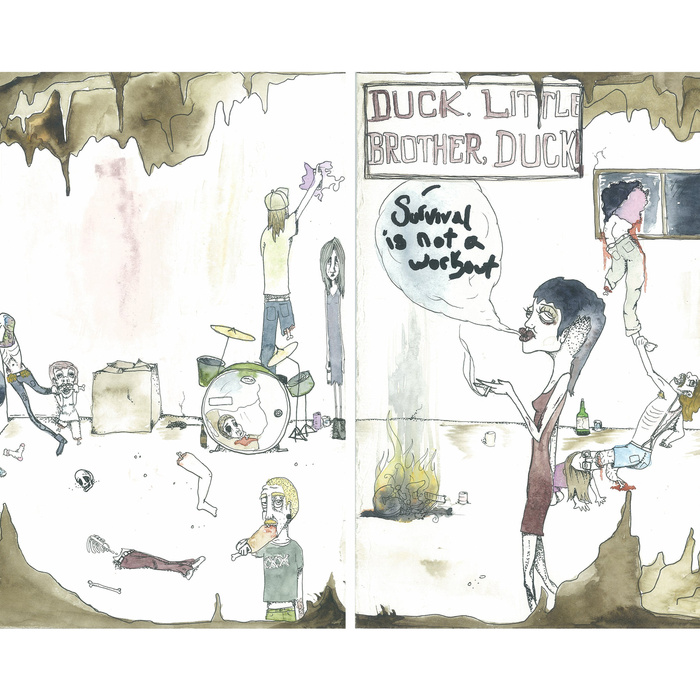 DUCK. LITTLE
BROTHER, DUCK!
Survival
is not a
workout